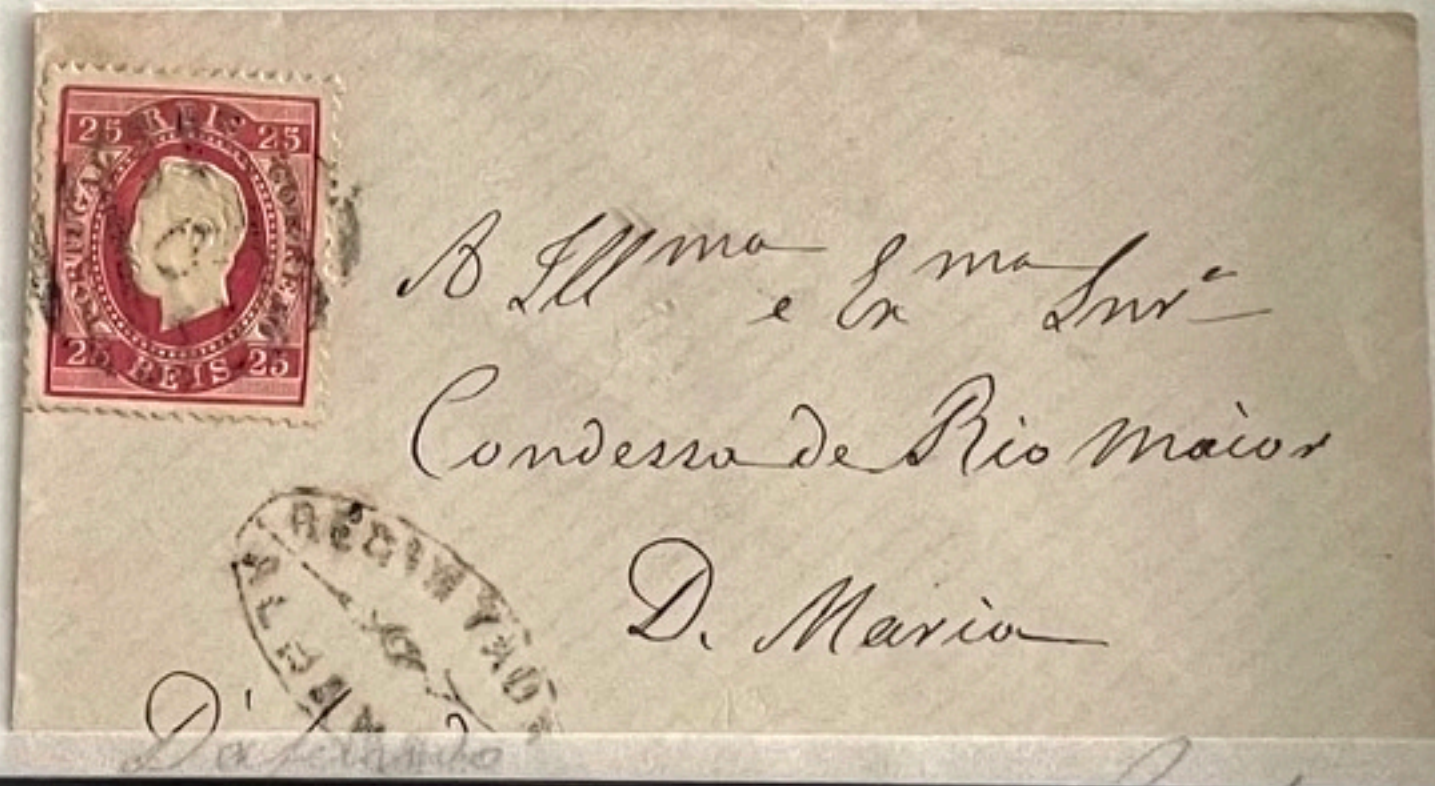 25 REIS 25
PORTUGAL CORREIO
25 REIS 25
A Ill.ma e Ex.ma Snr.a
Condessa de Rio Maior
D. Maria